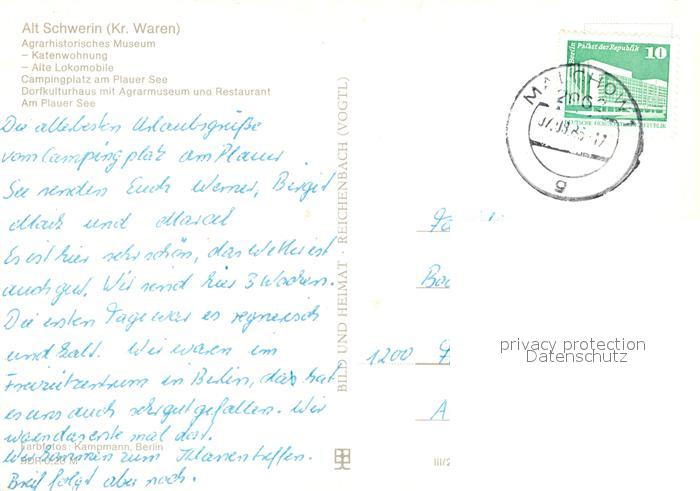 Alt Schwerin (Kr. Waren)
Agrarhistorisches Museum
– Katenwohnung
– Alte Lokomobile
Campingplatz am Plauer See
Dorfkulturhaus mit Agrarmuseum und Restaurant
Am Plauer See
Die allerbesten Urlaubsgrüße
vom Campingplatz am Plauer
See senden Euch Werner, Birgit
Maik und Marcel
Es ist hier sehr schön, das Wetter ist
auch gut. Wir sind hier 3 Wochen.
Die ersten Tage war es regnerisch
und kalt. Wir waren im
Freizeitzentrum in Berlin, das hat
es uns auch sehr gut gefallen. Wir
waren das erste mal dort.
Wir kommen zum
Brief folgt aber noch.
Farbfotos: Kampmann, Berlin
DDR 0,20 M
BILD UND HEIMAT · REICHENBACH (VOGTL)
III/2
Berlin Palast der Republik
10
DEUTSCHE DEMOKRATISCHE REPUBLIK
MALCHOW 1
2063
g
1200
A
privacy protection
Datenschutz